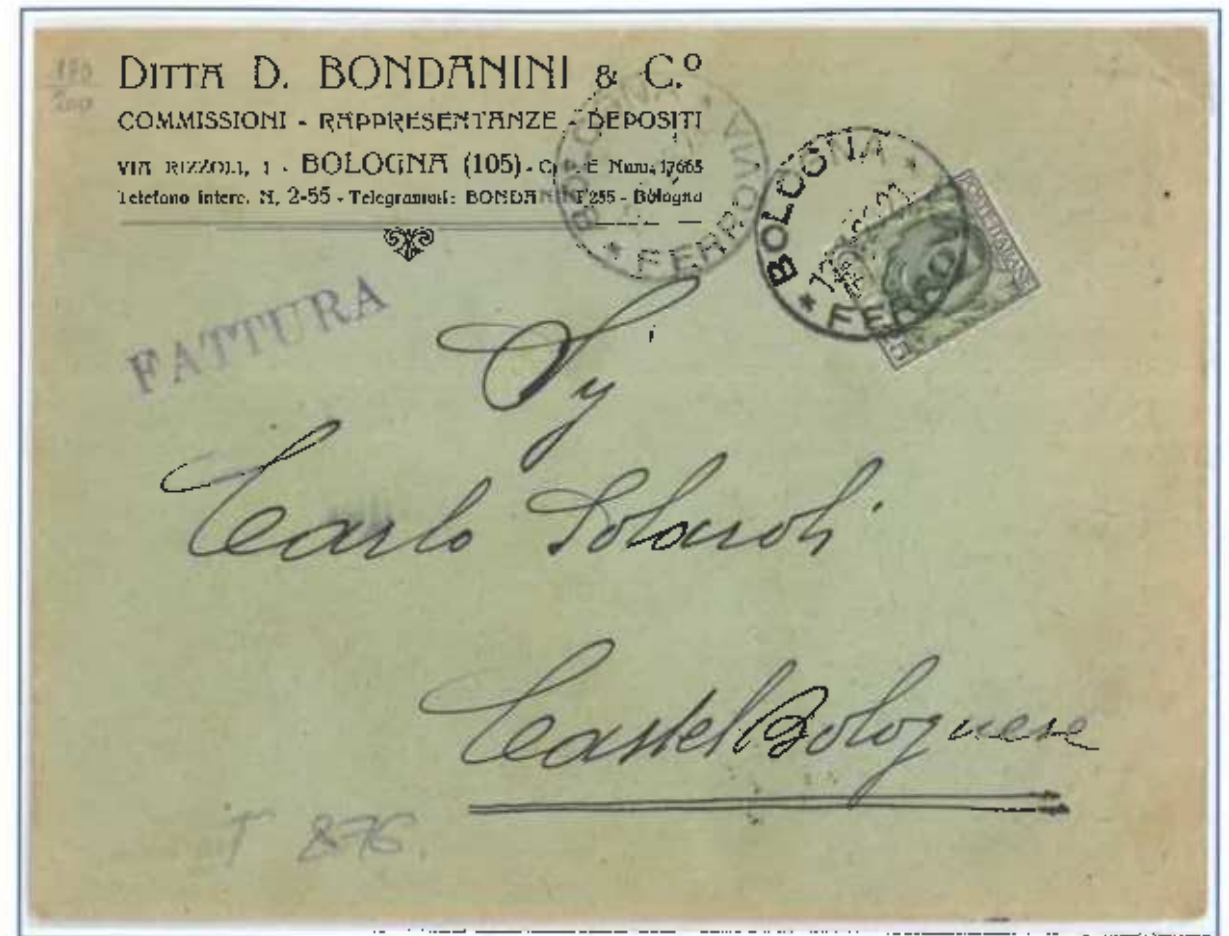 DITTA D. BONDANINI & C.º
COMMISSIONI - RAPPRESENTANZE - DEPOSITI
VIA RIZZOLI, 1 - BOLOGNA (105) - C. P. E Num. 17665
Telefono interc. N. 2-55 - Telegrammi: BONDANINI 255 - Bologna
BOLOGNA * FERROVIA *
BOLOGNA * FERROVIA
POSTE ITALIANE
FATTURA
Sig
Carlo Solaroli
Castel Bolognese
T 876.